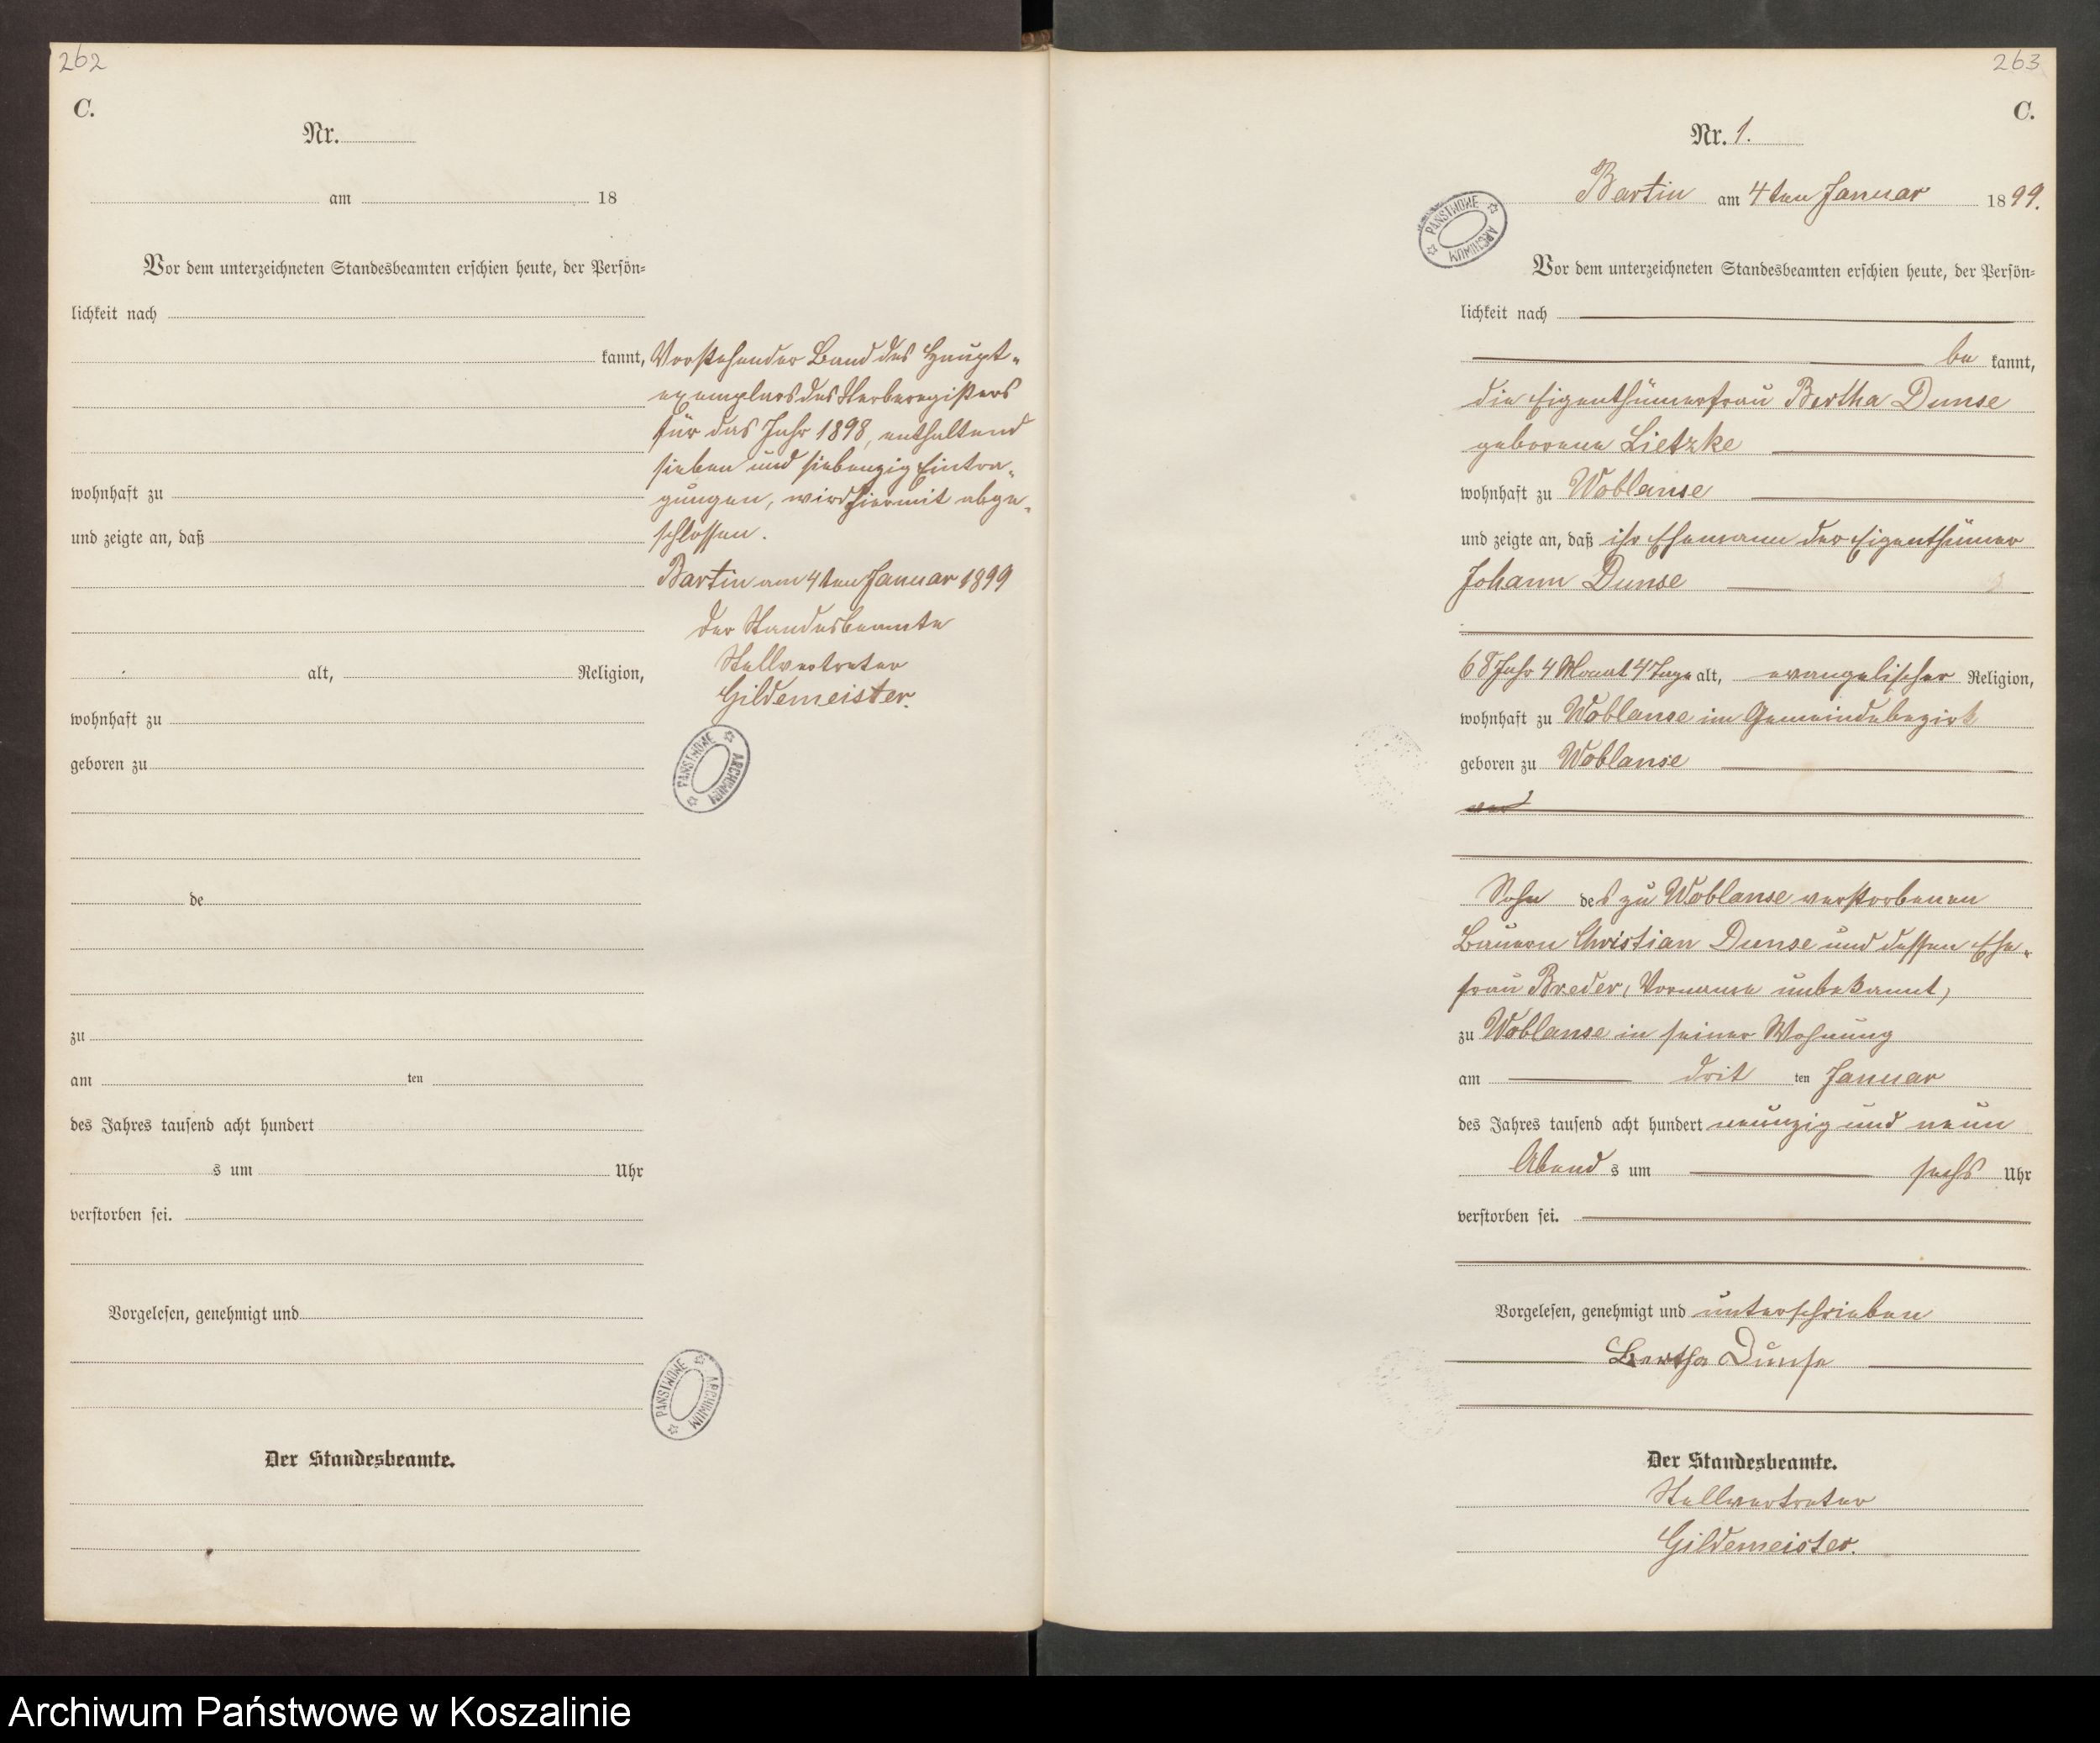 262
C.
Nr.
am 18
Vor dem unterzeichneten Standesbeamten erschien heute, der Persön=
lichkeit nach
kannt,
wohnhaft zu
und zeigte an, daß
alt, Religion,
wohnhaft zu
geboren zu
de
zu
am ten
des Jahres tausend acht hundert
s um Uhr
verstorben sei.
Vorgelesen, genehmigt und
Der Standesbeamte.
Vorstehender Band des Haupt-
exemplars des Sterberegisters
für das Jahr 1898, enthaltend
sieben und siebenzig Eintra-
gungen, wird hiermit abge-
schlossen.
Bartin am 4ten Januar 1899
Der Standesbeamte
Stellvertreter
Gildemeister.
PAŃSTWOWE ARCHIWUM
PAŃSTWOWE ARCHIWUM
263
C.
Nr. 1.
Bartin am 4ten Januar 1899.
PAŃSTWOWE ARCHIWUM
Vor dem unterzeichneten Standesbeamten erschien heute, der Persön=
lichkeit nach
be kannt,
die Eigenthümerfrau Bertha Dunse
geborene Lietzke
wohnhaft zu Woblanse
und zeigte an, daß ihr Ehemann der Eigenthümer
Johann Dunse
68 Jahr 4 Monat 4 Tage alt, evangelischer Religion,
wohnhaft zu Woblanse im Gemeindebezirk
geboren zu Woblanse
Sohn des zu Woblanse verstorbenen
Bauern Christian Dunse und dessen Ehe-
frau Breder, Vorname unbekannt,
zu Woblanse in seiner Wohnung
am drit ten Januar
des Jahres tausend acht hundert neunzig und neun
Abend s um sechs Uhr
verstorben sei.
Vorgelesen, genehmigt und unterschrieben
Bertha Dunse
Der Standesbeamte.
Stellvertreter
Gildemeister.
Archiwum Państwowe w Koszalinie